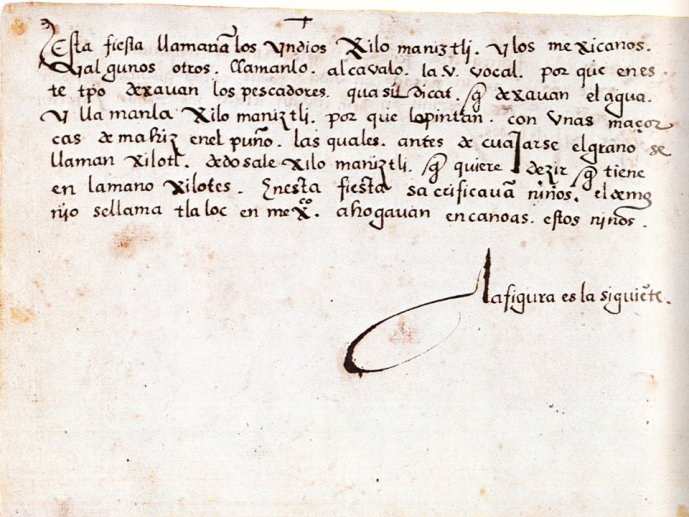 +
Esta fiesta llamauā los yndios Xilo maniztli. y los mexicanos.
Y algunos otros. llamanlo. alcavalo. la v. vocal. por que en es
te tp̄o dexauan los pescadores. quasi dicat. q̄ dexauan el agua.
y llamanla Xilo maniztli. por que lo pintan. con vnas maçor
cas de mahiz en el puño. las quales. antes de cuajarse el grano se
llaman xilotl. dedo sale xilo maniztli. q̄ quiere dezir q̄ tiene
en la mano xilotes. Enesta fiesta sacrificauā niños. el demo
njo se llama tlaloc en mexco. ahogauan en canoas. estos niños.
la figura es la siguiēte.